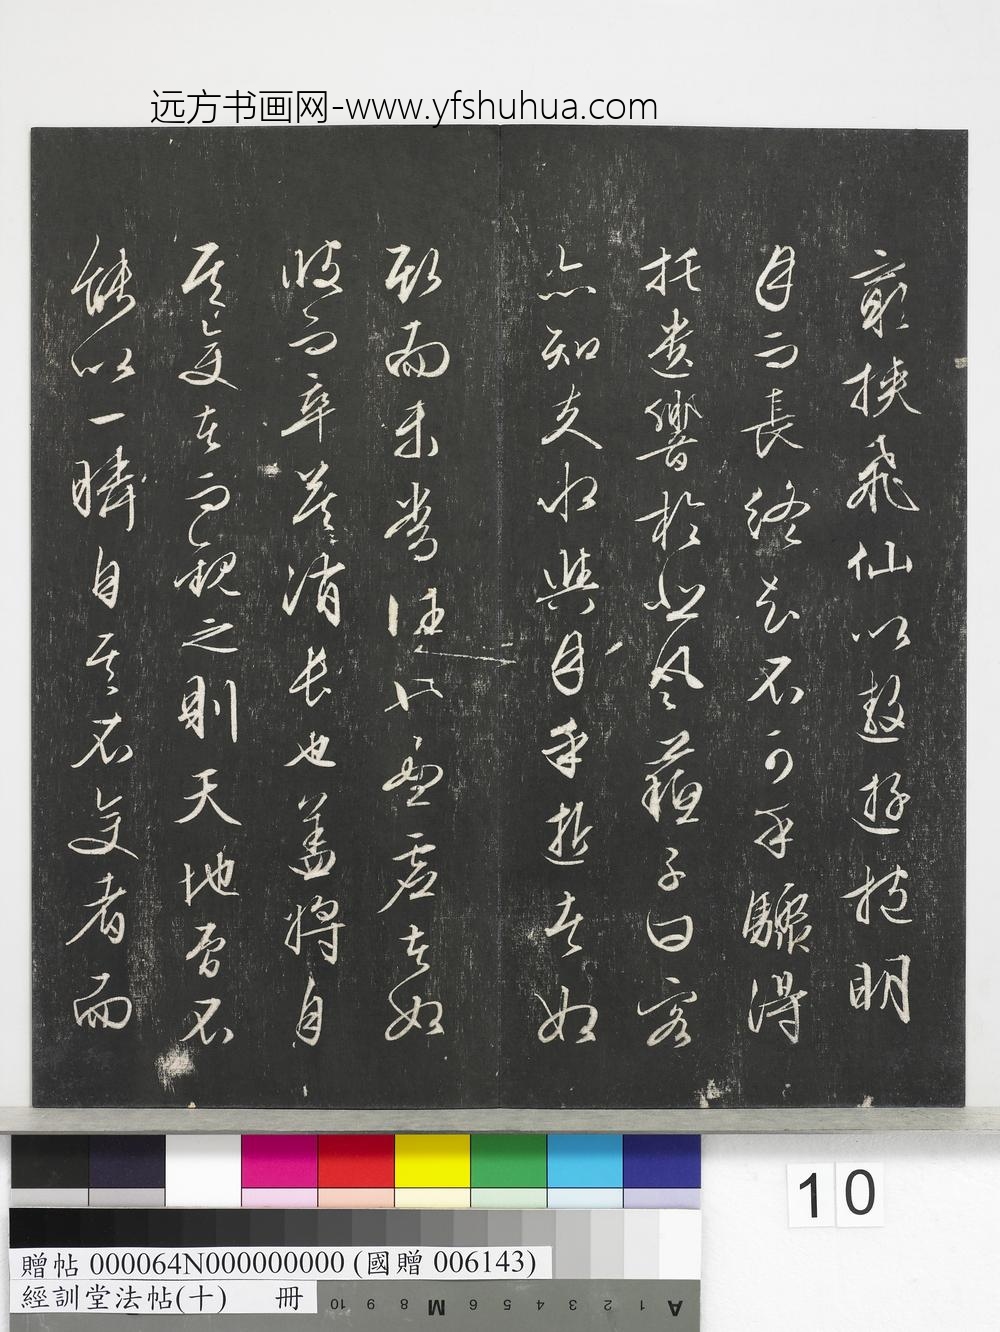 远方书画网-www.yfshuhua.com
窮挾飛仙以遨遊抱明
月而長終知不可乎驟得
托遺響於悲風蘇子曰客
亦知夫水與月乎逝者如
斯而未嘗往也盈虛者如
彼而卒莫消長也盖將自
其變者而觀之則天地曾不
能以一瞬自其不變者而
10
贈帖 000064N000000000 (國贈 006143)
經訓堂法帖(十) 冊
10 9 8 M 6 5 4 3 2 1 A